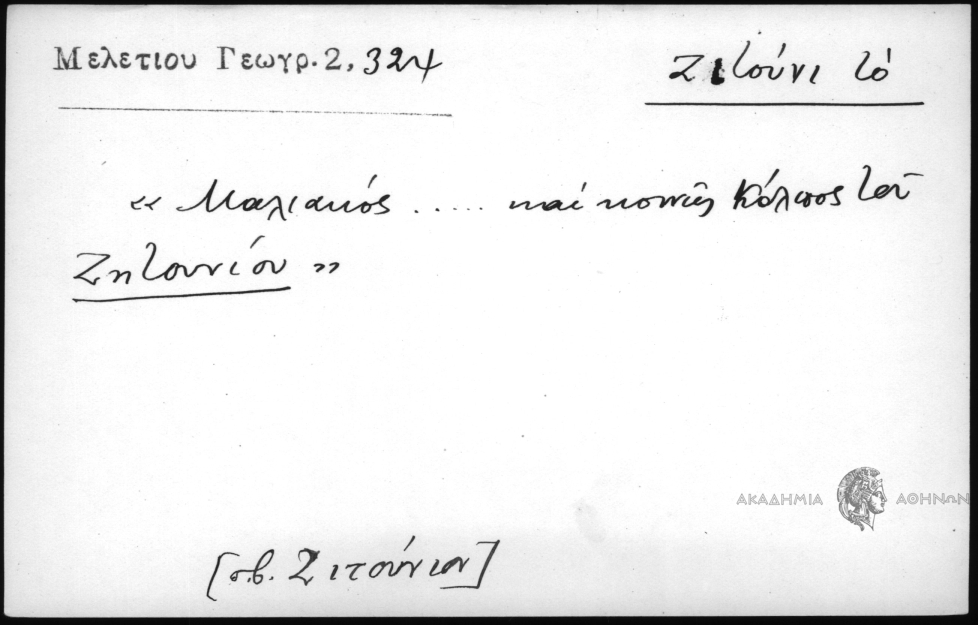 Μελετίου Γεωγρ. 2, 324
Ζιτούνι τό
« Μαλιακός ..... καί κοινῶς Κόλπος τοῦ
Ζητουνίου »
ΑΚΑΔΗΜΙΑ ΑΘΗΝΩΝ
[σ.β. Ζιτούνιον]